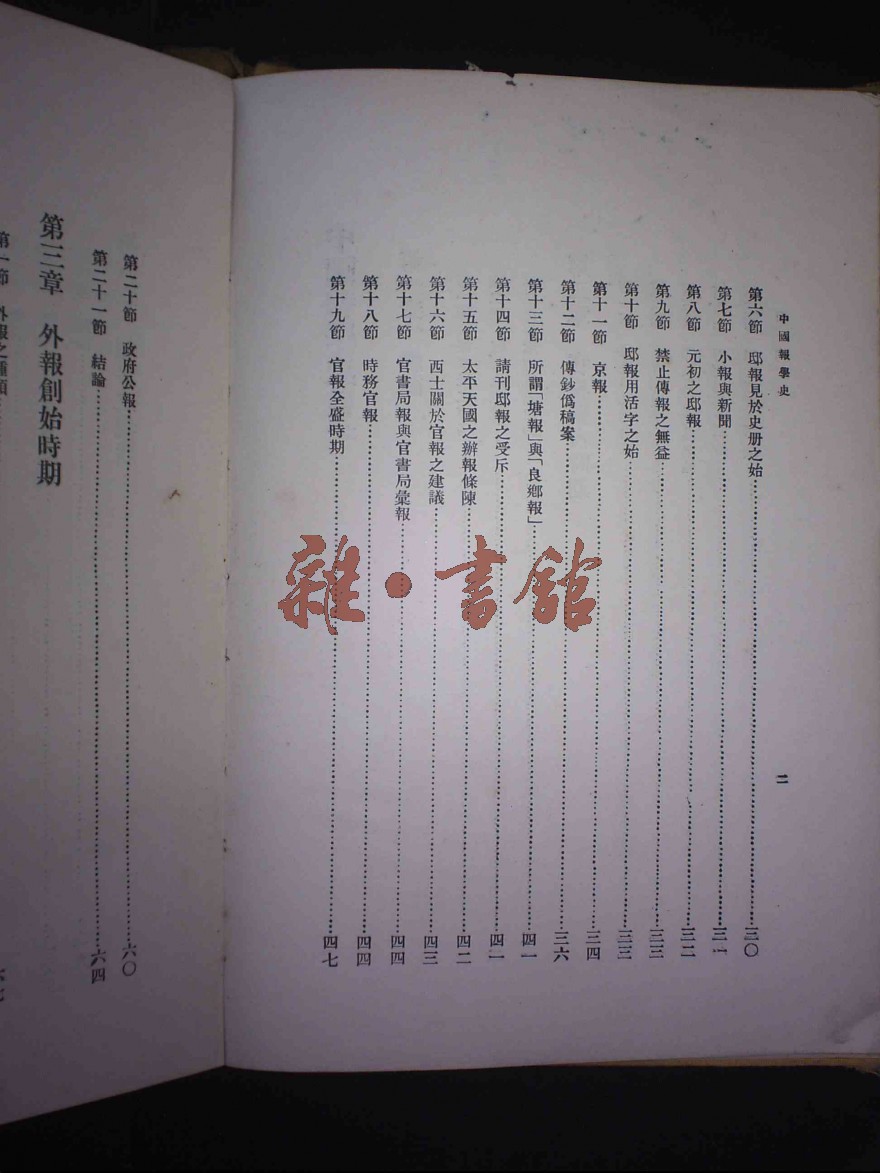 中國報學史
二
第六節 邸報見於史册之始 三〇
第七節 小報與新聞 三一
第八節 元初之邸報 三二
第九節 禁止傳報之無益 三三
第十節 邸報用活字之始 三三
第十一節 京報 三四
第十二節 傳鈔僞稿案 三六
第十三節 所謂「塘報」與「良鄉報」 四一
第十四節 請刊邸報之受斥 四一
第十五節 太平天國之辦報條陳 四二
第十六節 西士關於官報之建議 四三
第十七節 官書局報與官書局彙報 四四
第十八節 時務官報 四四
第十九節 官報全盛時期 四七
第二十節 政府公報 六〇
第二十一節 結論 六四
第三章 外報創始時期
第一節 外報之種類 六七
雜·書館